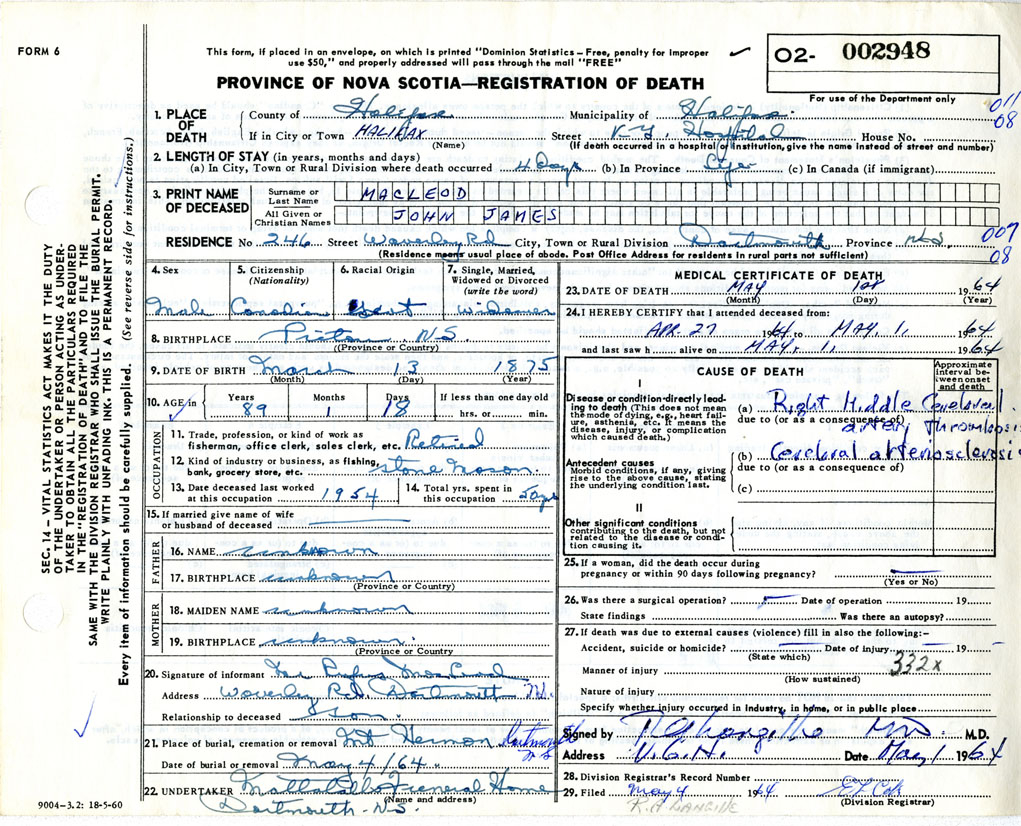 FORM 6
This form, if placed in an envelope, on which is printed "Dominion Statistics—Free, penalty for improper
use $50," and properly addressed will pass through the mail "FREE"
O2- 002948
For use of the Department only
PROVINCE OF NOVA SCOTIA—REGISTRATION OF DEATH
011
08
1. PLACE OF DEATH
County of Halifax Municipality of Halifax
If in City or Town HALIFAX (Name) Street V.G. Hospital House No.
(If death occurred in a hospital or institution, give the name instead of street and number)
2. LENGTH OF STAY (in years, months and days)
(a) In City, Town or Rural Division where death occurred 4 Days (b) In Province Life (c) In Canada (if immigrant)
3. PRINT NAME OF DECEASED
Surname or Last Name MACLEOD
All Given or Christian Names JOHN JAMES
RESIDENCE No. 246 Street Waverley Rd City, Town or Rural Division Dartmouth Province N.S. 007
08
(Residence means usual place of abode. Post Office Address for residents in rural parts not sufficient)
4. Sex
Male
5. Citizenship (Nationality)
Canadian
6. Racial Origin
Scot
7. Single, Married, Widowed or Divorced (write the word)
Widower
8. BIRTHPLACE Pictou N.S.
(Province or Country)
9. DATE OF BIRTH March 13 1875
(Month) (Day) (Year)
10. AGE in Years 89 Months 1 Days 18 If less than one day old
hrs. or min.
OCCUPATION
11. Trade, profession, or kind of work as
fisherman, office clerk, sales clerk, etc. Retired
12. Kind of industry or business, as fishing,
bank, grocery store, etc. Stone Mason
13. Date deceased last worked at this occupation 1954
14. Total yrs. spent in this occupation 50 yrs
15. If married give name of wife
or husband of deceased
FATHER
16. NAME unknown
17. BIRTHPLACE unknown
(Province or Country)
MOTHER
18. MAIDEN NAME unknown
19. BIRTHPLACE unknown
(Province or Country)
20. Signature of informant
Address Waverley Rd Dartmouth N.S.
Relationship to deceased Son
21. Place of burial, cremation or removal Mt Hermon Dartmouth N S
Date of burial or removal May 4/64
22. UNDERTAKER Mattatalls Funeral Home
(Name and address)
Dartmouth N.S.
MEDICAL CERTIFICATE OF DEATH
23. DATE OF DEATH MAY 1st 1964
(Month) (Day) (Year)
24. I HEREBY CERTIFY that I attended deceased from:
APR. 27 1964 to MAY 1, 1964
and last saw h alive on MAY. 1, 1964
CAUSE OF DEATH
Approximate interval between onset and death
I
Disease or condition directly leading to death (This does not mean the mode of dying, e.g., heart failure, asthenia, etc. It means the disease, injury, or complication which caused death.)
(a) Right Middle Cerebral
due to (or as a consequence of)
artery thrombosis
Antecedent causes
Morbid conditions, if any, giving rise to the above cause, stating the underlying condition last.
(b) Cerebral arteriosclerosis
due to (or as a consequence of)
(c)
II
Other significant conditions
contributing to the death, but not related to the disease or condition causing it.
25. If a woman, did the death occur during
pregnancy or within 90 days following pregnancy?
(Yes or No)
26. Was there a surgical operation? Date of operation 19
State findings Was there an autopsy?
27. If death was due to external causes (violence) fill in also the following:—
Accident, suicide or homicide? Date of injury 19
(State which)
332x
Manner of injury
(How sustained)
Nature of injury
Specify whether injury occurred in Industry, in home, or in public place
Signed by M.D. M.D.
Address V.G.H. Date May 1 1964
28. Division Registrar's Record Number
29. Filed May 4 1964
(Division Registrar)
R. A. LANGILLE
SEC. 14 – VITAL STATISTICS ACT MAKES IT THE DUTY
OF THE UNDERTAKER OR PERSON ACTING AS UNDER-
TAKER TO OBTAIN ALL THE PARTICULARS REQUIRED
IN THE "REGISTRATION OF DEATH" AND TO FILE THE
SAME WITH THE DIVISION REGISTRAR WHO SHALL ISSUE THE BURIAL PERMIT.
WRITE PLAINLY WITH UNFADING INK. THIS IS A PERMANENT RECORD.
Every item of information should be carefully supplied. (See reverse side for instructions.)
9004-3.2: 18-5-60